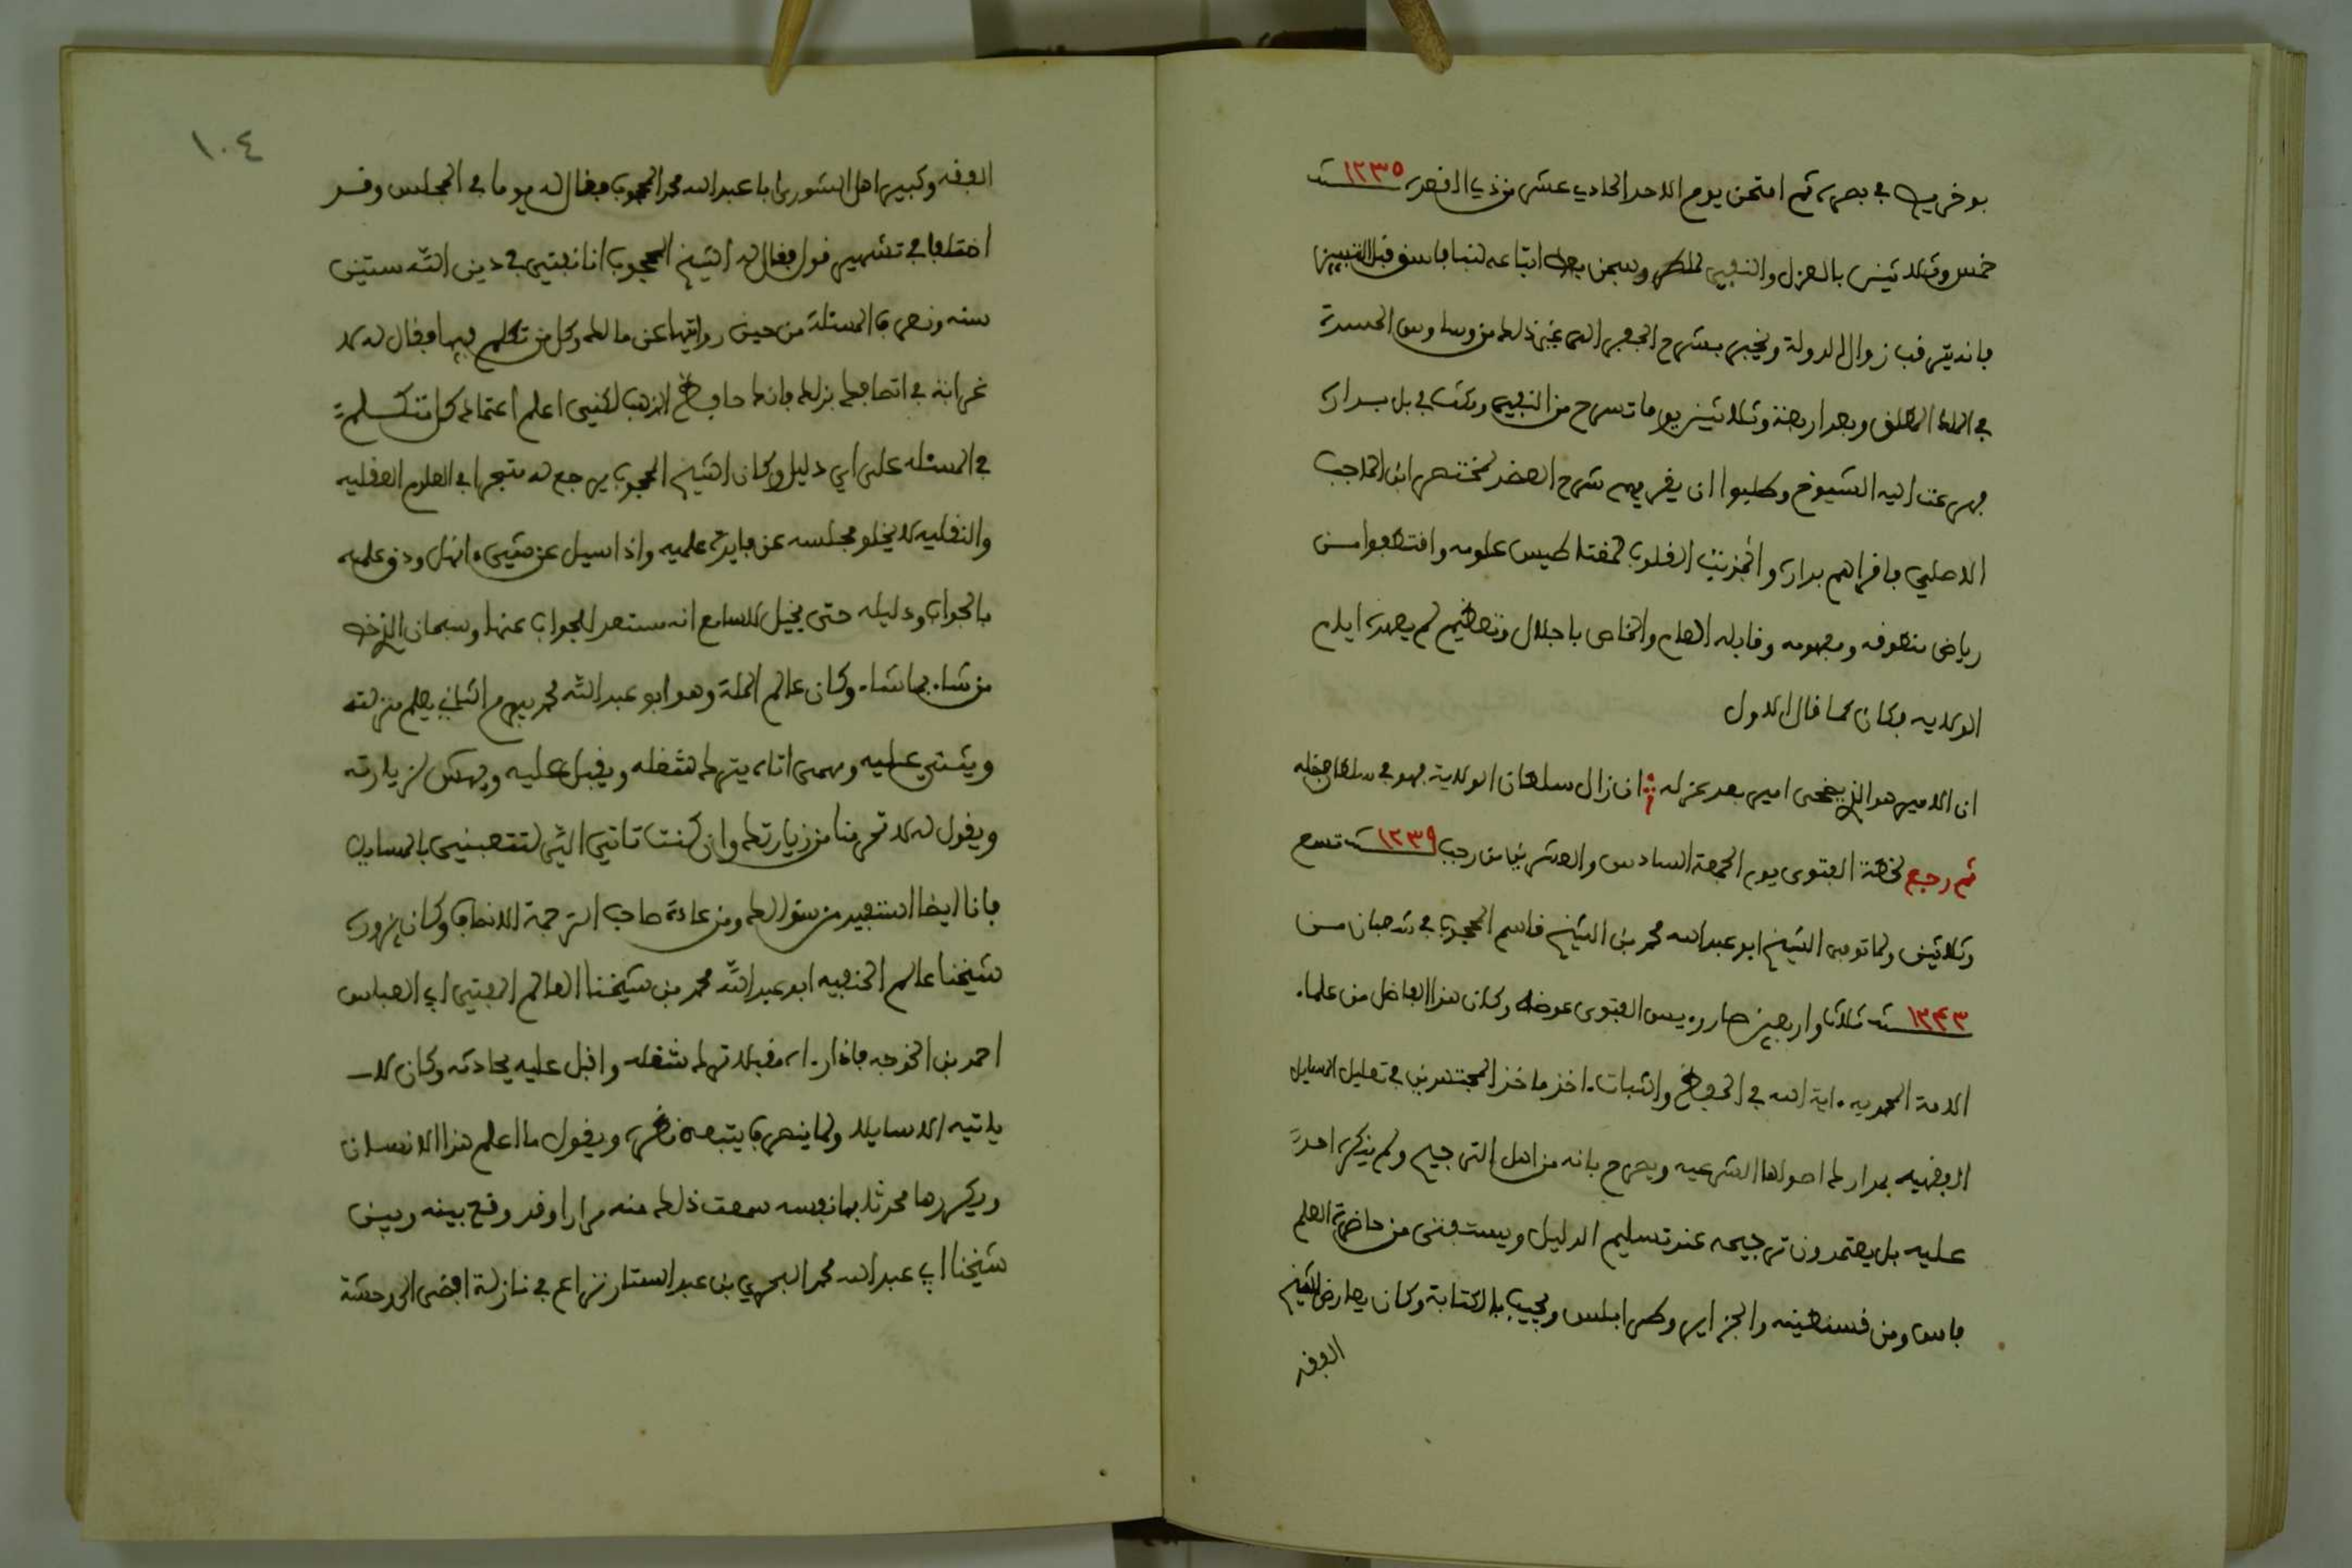 بوخريص في بصره ثم امتحن يوم الاحد الحادي عشر من ذي القعدة سنة ١٢٣٥
خمس وثلاثين بالعزل والنفي لماطر وسجن بعض اتباعه لنبا فاسق قبل التبين
في الملا المطلق وبعد اربعة وثلاثين يوما تسرح من النفي ومكث في بل بداره
فهرعت اليه الشيوخ وطلبوا ان يقريهم شرح العضد لمختصر ابن الحاجب
الاصلي فاقراهم بداره وانجذبت القلوب لمغناطيس علومه واقتطفوا من
رياض منطوقه ومفهومه وقابله العام والخاص باجلال وتعظيم لم يعهده ايام
الولاية فكان كما قال الاول
ان الامير هو الذي يضحى امير بعد عزله ان زال سلطان الولاية فهو في سلطان فضله
ثم رجع لخطة الفتوى يوم الجمعة السادس والعشرين من رجب سنة ١٢٣٩ تسع
وثلاثين ولما توفي الشيخ ابو عبد الله محمد بن الشيخ قاسم المحجوب في شعبان من
سنة ١٢٤٣ ثلاث واربعين صار رئيس الفتوى عوضه وكان هذا الفاضل من علماء
الامة المحمدية اية الله في الحفظ والثبات اخذ ماخذ المجتهدين في تعليل المسايل
الفقهيه بمدارك اصولها الشرعيه ويصرح بانه من اهل الترجيح ولم ينكره احد
عليه بل يعتمدون ترجيحه عند تسليم الدليل ويستفتى من حاضرة العلم
فاس ومن قسنطينه والجزاير وطرابلس ويجيب بالكتابة وكان يعارض الشيخ
الفقه
١٠٤
الفقه وكبير اهل الشورى ابا عبد الله محمد المحجوب فقال له يوما في المجلس وقد
اختلفا في تشهير قول فقال له الشيخ المحجوب انا نفتي في دين الله ستين
سنه ونعرف المسئلة من حين روايتها عن مالك وكل من تكلم فيها فقال له لا
غرابة في اتصافك بذلك فانك حافظ المذهب لكنني اعلم اعتماد كل متكلم
في المسئله على اي دليل وكان الشيخ المحجوب يرجع له متبحرا في العلوم العقليه
والنقليه لا يخلو مجلسه عن فايدة علميه واذا سيل عن شيء انهل ودق علمه
بالجواب ودليله حتى يخيل للسامع انه مستعد للجواب عنها وسبحان الذي خص
من شاء بما شاء وكان عالم الملة وهو ابو عبد الله محمد بيرم الثاني يعلم منزلته
ويثني عليه ومهمى اتاه يترك شغله ويقبل عليه ويهش لزيارته
ويقول له لا تحرمنا من زيارتك وان كنت تاتي الي لتتعبني بالمسايل
فانا ايضا استفيد من سؤالك ومن عادة صاحب الترجمة الانصاف وكان يزوره
شيخنا عالم الحنفيه ابو عبد الله محمد بن شيخنا العالم المفتي ابي العباس
احمد بن الخوجه فاذا رءاه مقبلا ترك شغله واقبل عليه يحادثه وكان لا
ياتيه الا سايلا ولما ينصرف يتبعه نظره ويقول ما اعلم هذا الانسان
ويكررها محدثا بها نفسه سمعت ذلك منه مرارا وقد وقع بينه وبين
شيخنا ابي عبد الله محمد البحري بن عبد الستار نزاع في نازلة افضى الى وحشة